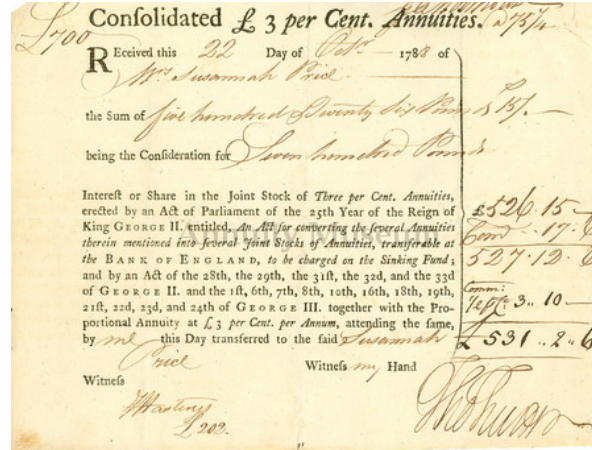 Consolidated £ 3 per Cent. Annuities.
£700
75 1/4
REceived this 22 Day of Octr 1788 of
Mrs Susannah Price
the Sum of five hundred & twenty six Pounds & 15/.
being the Consideration for Seven hundred Pounds
Interest or Share in the Joint Stock of Three per Cent. Annuities,
erected by an Act of Parliament of the 25th Year of the Reign of
King GEORGE II. entitled, An Act for converting the several Annuities
therein mentioned into several Joint Stocks of Annuities, transferable at
the BANK of ENGLAND, to be charged on the Sinking Fund;
and by an Act of the 28th, the 29th, the 31st, the 32d, and the 33d
of GEORGE II. and the 1st, 6th, 7th, 8th, 10th, 16th, 18th, 19th,
21st, 22d, 23d, and 24th of GEORGE III. together with the Pro-
portional Annuity at £ 3 per Cent. per Annum, attending the same,
by me this Day transferred to the said Susannah
Price
Witness my Hand
Witness
J Hastings
£202.
£526.15
17.6
527.12.6
Comm:
3..10
£531..2..6